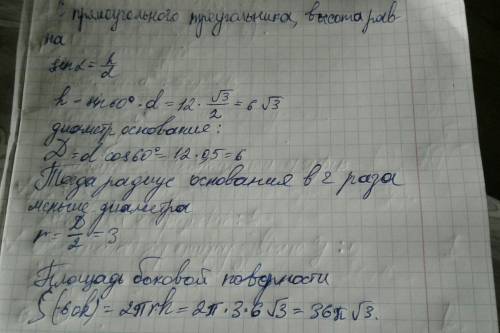 прямоугольного треугольника, высота рав-
на
sin α = h/d
h = sin 60° · d = 12 · √3/2 = 6√3
диаметр основание:
D = d cos 60° = 12 · 0,5 = 6
Тогда радиус основания в 2 раза
меньше диаметра
r = D/2 = 3
Площадь боковой поверности
S(бок) = 2πrh = 2π · 3 · 6√3 = 36π√3.